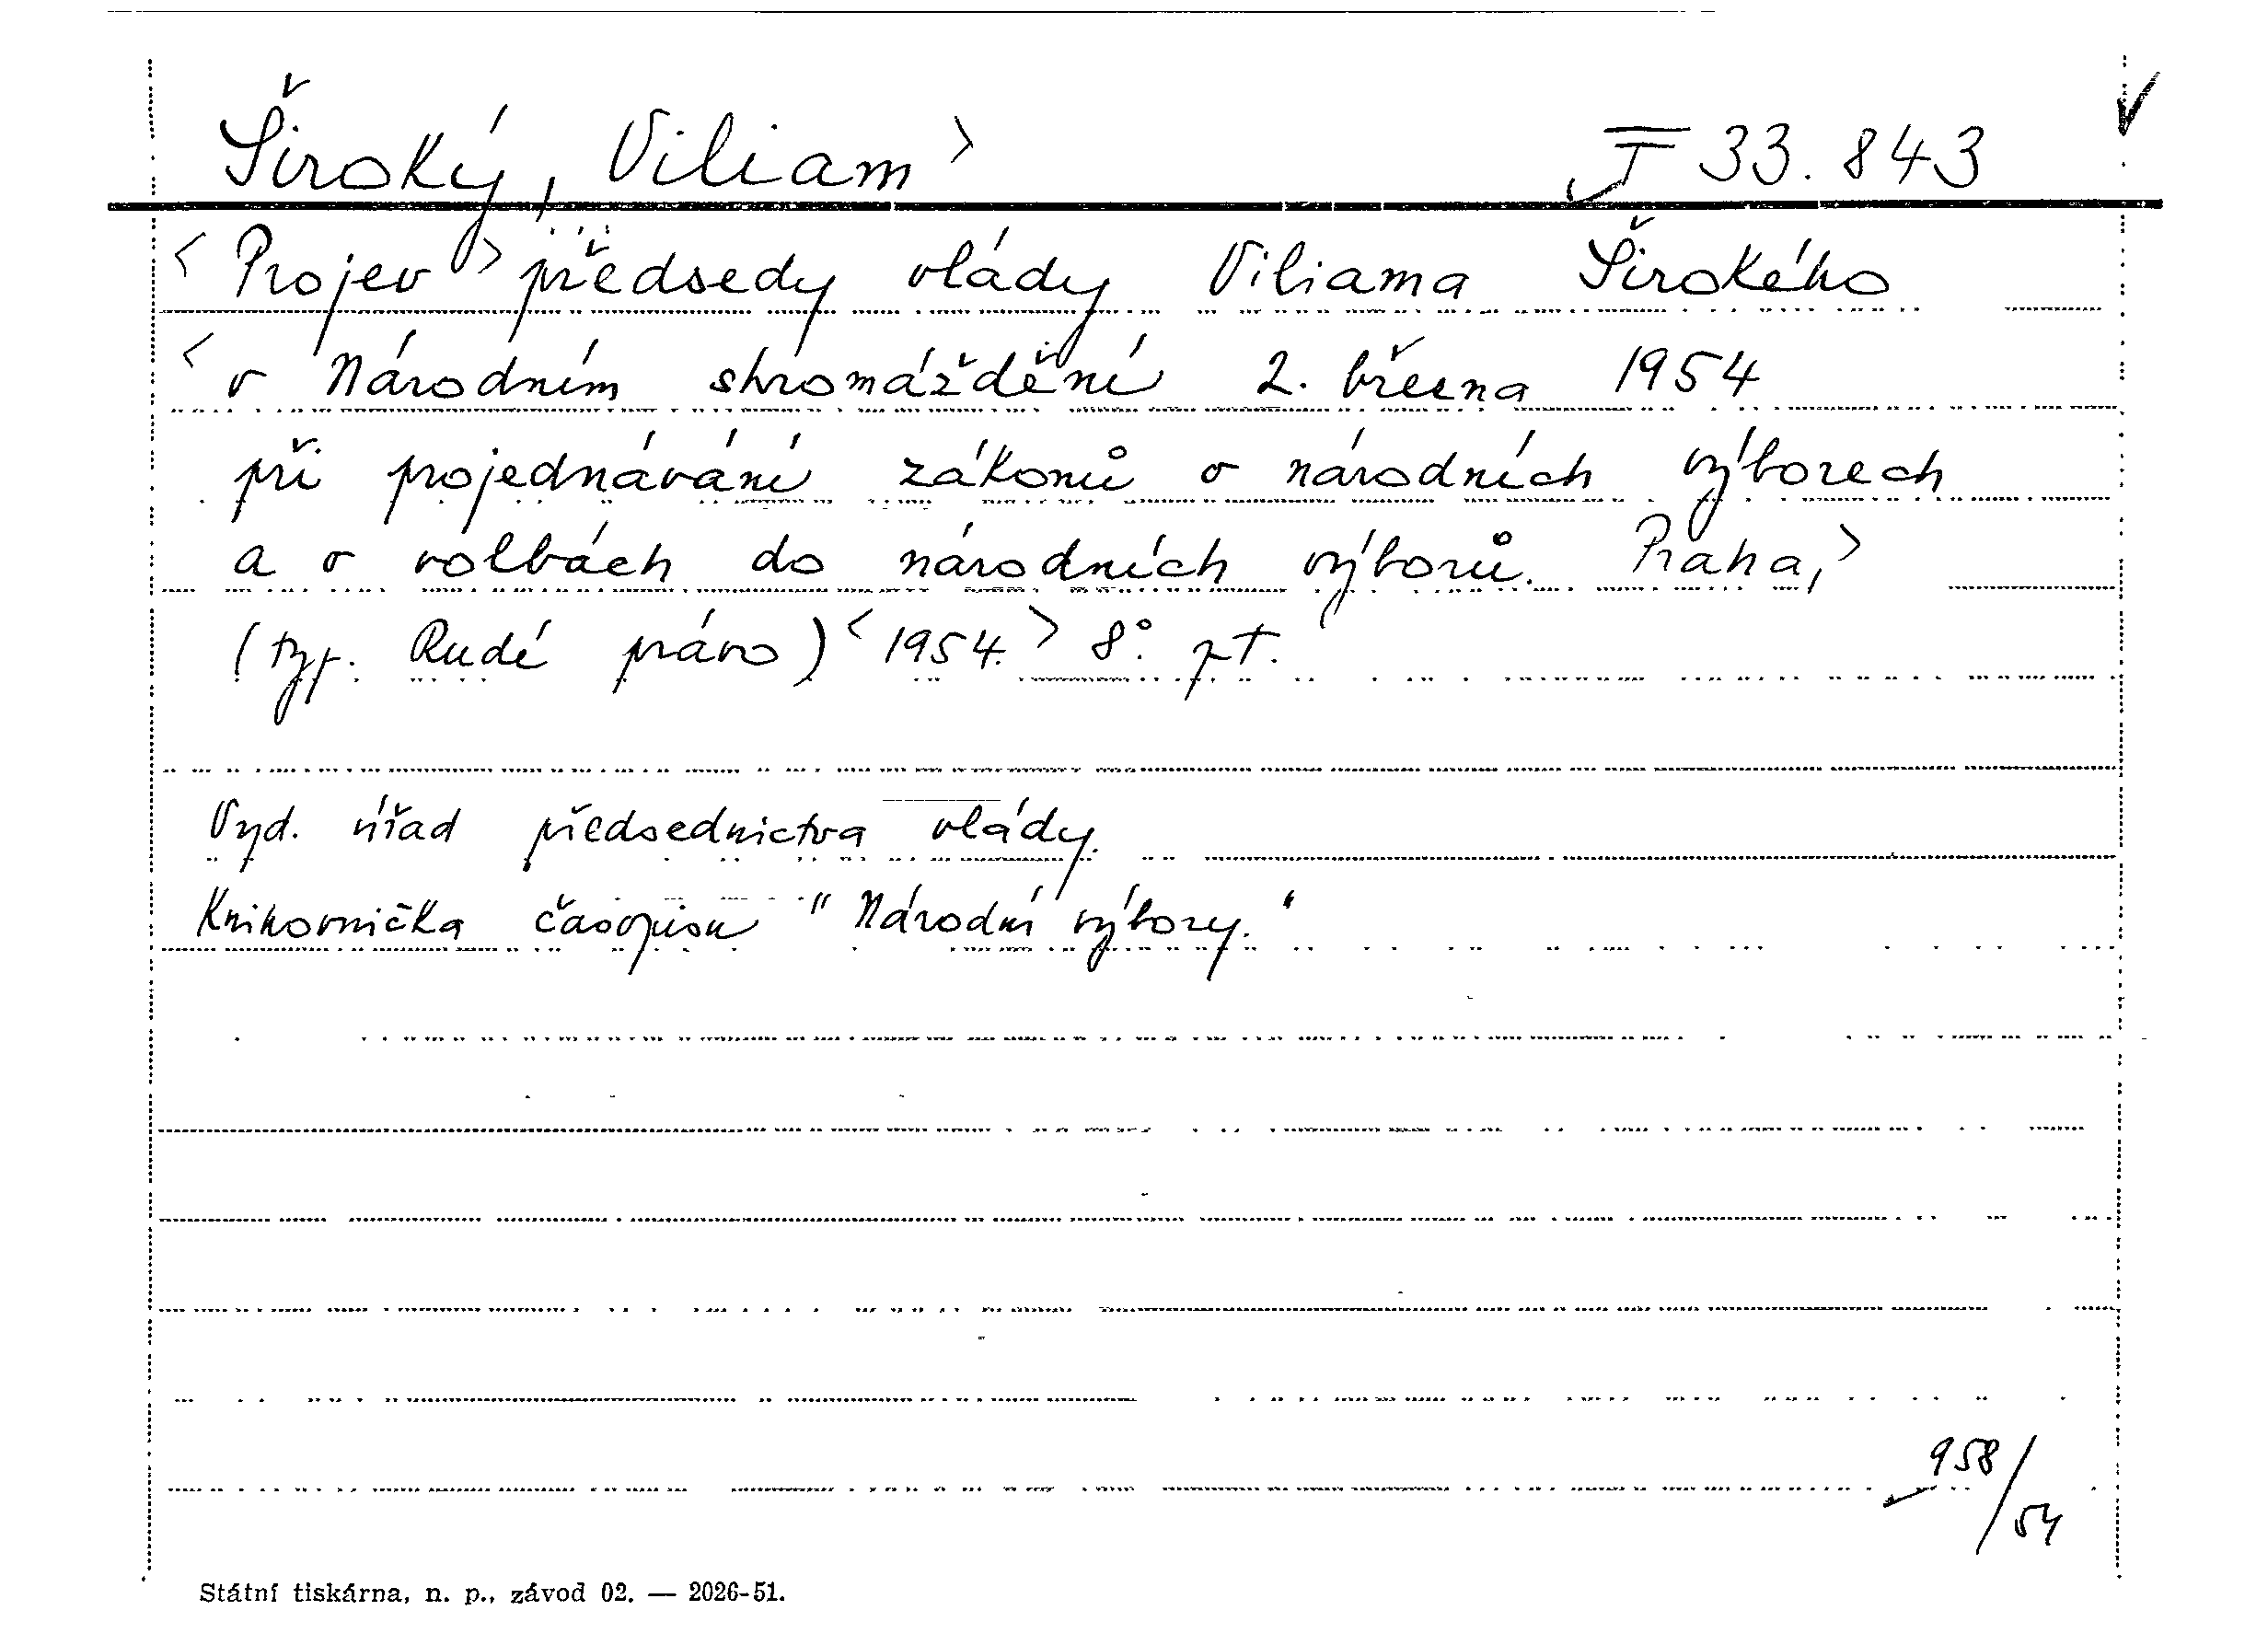 Široký, Viliam> I 33.843
<Projev> předsedy vlády Viliama Širokého
<v Národním shromáždění 2. března 1954
při projednávání zákonů o národních výborech
a o volbách do národních výborů. Praha,>
(typ. Rudé právo) <1954.> 8°. pt.
Vyd. úřad předsednictva vlády.
Knihovnička časopisu "Národní výbory."
958/54
Státní tiskárna, n. p., závod 02. — 2026-51.